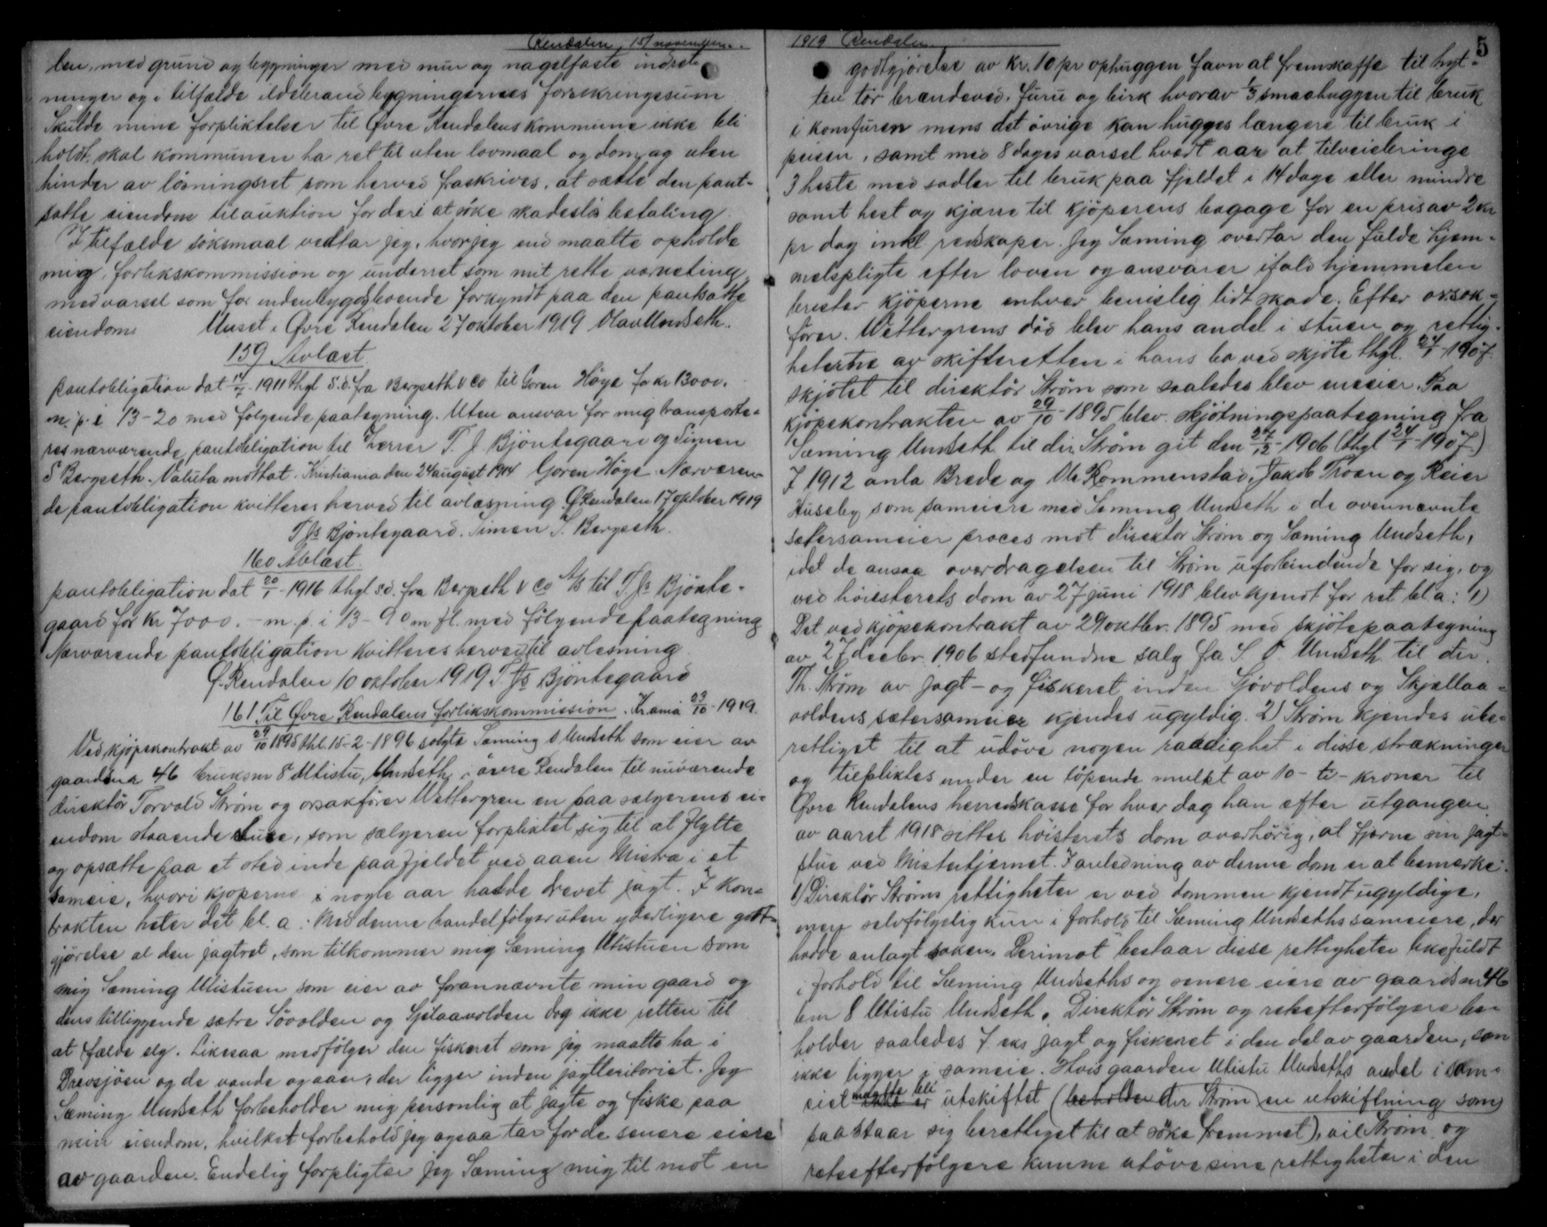 Rendalen, 15/ november.
len, med grund og bygninger med mur og nagelfaste indret-
ninger og i tilfælde ildebrand bygningernes forsikringssum
Skulde mine forpliktelser til Øvre Rendalens kommune ikke bli
holdt, skal kommunen ha ret til uten lovmaal og dom, og uten
hinder av løsningsret som herved fraskrives, at sætte den pant-
satte eiendom til auktion for deri at søke skadesløs betaling.
I tilfælde søksmaal vedtar jeg, hvor jeg end maatte opholde
mig, forlikskommission og underret som mit rette verneting
med varsel som for indenbygdsboende forkyndt paa den pantsatte
eiendom Unset i Øvre Rendalen 27 oktober 1919 Olav Undseth.
159 Avlæst
pantobligation dat 14/7 1911 thgl s.d. fra Bergseth & Co til Goren Høye for kr 13000.
m. p. i 13-20 med følgende paategning. Uten ansvar for mig transporte-
res nærværende pantobligation til Herrer T. J. Bjøntegaard og Simen
S Bergseth. Valuta mottat. Kristiania den 24 august 1914 Goren Høye. Nærværen-
de pantobligation kvitteres herved til avlæsning. Ø Rendalen 17 oktober 1919
T Js Bjøntegaard. Simen S. Bergseth.
160 Avlæst.
pantobligation dat 20/1 - 1916 thgl s.d. fra Bergseth & Co A/s til T. Js Bjønte-
gaard for kr 7000. - m. p. i 13 - 90 m fl. med følgende paategning
Nærværende pantobligation kvitteres herved til avlesning.
Ø. Rendalen 10 oktober 1919 T. Js Bjøntegaard
161 Til Øvre Rendalens forlikskommission. Kr.ania 23/10 - 1919.
Ved kjøpekontrakt av 29/10 1895 thl. 15-2-1896 solgte Sæming S. Undseth som eier av
gaardsnr 46 bruksnr 8 Utistu, Undseth, i øvre Rendalen til nuværende
direktør Torvald Strøm og orsakfører Wettergren en paa sælgerens ei-
endom staaende stue, som sælgeren forpliktet sig til at flytte
og opsætte paa et sted inde paa fjeldet ved aaen Mistra i et
sameie, hvori kjøperne i nogle aar hadde drevet jagt. I kon-
trakten heter det bl. a: Med denne handel følger uten yderligere godt-
gjørelse al den jagtret, som tilkommer mig Sæming Utistuen som
mig Sæming Utistuen som eier av forannævnte min gaard og
dens tilliggende sætre Søvolden og Sjølaavolden dog ikke retten til
at fælde elg. Likesaa medfølger den fiskeret som jeg maatte ha i
Drevsjøen og de vande og aaer, der ligger inden jagtteritoriet. Jeg
Sæming Undseth forbeholder mig personlig at jagte og fiske paa
min eiendom, hvilket forbehold jeg ogsaa tar for de senere eiere
av gaarden. Endelig forpligter jeg Sæming mig til mot en
1919 Rendalen
5
godtgjørelse av kr. 10 pr ophuggen favn at fremskaffe til hyt-
ten tør brændeved, furu og birk hvorav 1/3 smaahuggen til bruk
i komfuren mens det øvrige kan hugges længere til bruk i
peisen, samt med 8 dages varsel hvert aar at tilveiebringe
3 heste med sadler til bruk paa fjeldet i 14 dage eller mindre
samt hest og kjærre til kjøperens bagage for en pris av 2 kr
pr dag inkl redskaper. Jeg Sæming overtar den fulde hjem-
melspligte efter loven og ansvarer ifald hjemmelen
brister kjøperne enhver bevislig lidt skade. Efter orsak-
fører Wettergrens død blev hans andel i stuen og rettig-
heterne av skifteretten i hans bo ved skjøte thgl. 24/1 1907
skjøtet til direktør Strøm som saaledes blev eneeier. Paa
kjøpekontrakten av 29/10 - 1895 blev skjøtningspaategning fra
Sæming Undseth til dir. Strøm git den 27/12 - 1906 (thgl 24/1 - 1907)
I 1912 anla Brede og Ole Kommenstad, Jakob Thoen og Reier
Huseby som sameiere med Sæming Undseth i de ovennævnte
sætersameier proces mot direktør Strøm og Sæming Undseth,
idet de ansaa overdragelsen til Strøm uforbindende for sig, og
ved høiesterets dom av 27 juni 1918 blev kjendt for ret bl a: 1)
Det ved kjøpekontrakt av 29 oktbr. 1895 med skjøtepaategning
av 27 decbr. 1906 stedfundne salg fra S. S. Undseth til dir.
Th. Strøm av jagt- og fiskeret inden Sjøvoldens og Skjællaa-
voldens sætersameier kjendes ugyldig. 2) Strøm kjendes ube-
rettiget til at utøve nogen raadighet i disse strækninger
og tilpliktes under en løpende mulkt av 10 - ti - kroner til
Øvre Rendalens herredskasse for hver dag han efter utgangen
av aaret 1918 sitter høisterets dom overhørig, at fjerne sin jagt-
stue ved Mistertjernet. I anledning av denne dom er at bemerke:
1) Direktør Strøms rettigheter er ved dommen kjendt ugyldige,
men selvfølgelig kun i forhold til Sæming Undseths sameiere, der
hadde anlagt saken. Derimot bestaar disse rettigheter like fuldt
i forhold til Sæming Undseths og senere eiere av gaardsnr 46
bnr 8 Utistu Undseth. Direktør Strøm og retsefterfølgere be-
holder saaledes f. eks jagt og fiskeret i den del av gaarden, som
ikke ligger i sameie. Hvis gaarden Utistu Undseths andel i sam-
eiet maatte bli utskiftet (dir Strøm en utskiftning som
paastaar sig berettiget til at søke fremmet), vil Strøm og
retsefterfølgere kunne utøve sine rettigheter i den